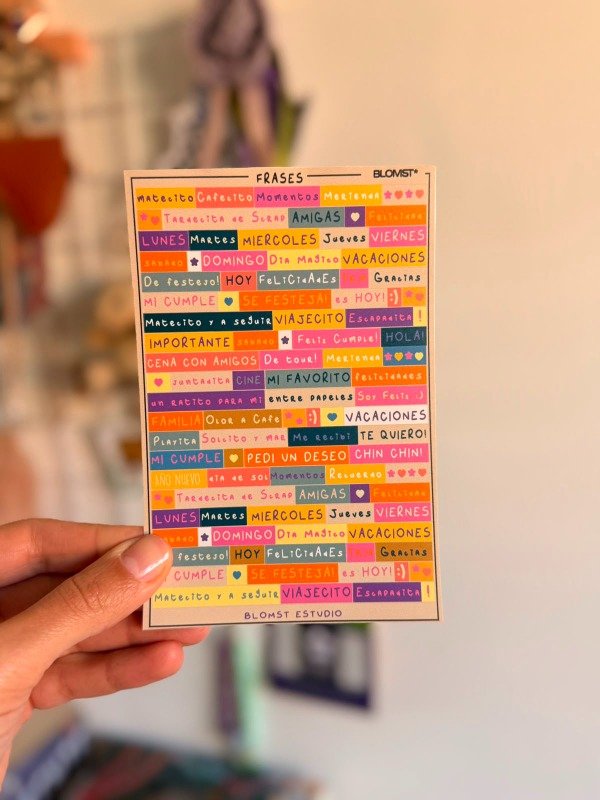 FRASES BLOMST®
matecito Cafecito Momentos Merienda
Tardecita de Scrap AMIGAS Felicidad
LUNES Martes MIERCOLES Jueves VIERNES
SABADO DOMINGO Dia Magico VACACIONES
De festejo! HOY FeLiCiDAdEs Gracias
MI CUMPLE SE FESTEJA! es HOY! :)
Matecito y a seguir VIAJECITO Escapadita !
IMPORTANTE SABADO Feliz Cumple! HOLA!
CENA CON AMIGOS De tour! Merienda
Juntadita CINE MI FAVORITO felicidades
un ratito para mi entre papeles Soy Feliz :)
FAMILIA Olor a Cafe :) VACACIONES
Playita Solcito y mar Me recibi TE QUIERO!
MI CUMPLE PEDI UN DESEO CHIN CHIN!
AÑO NUEVO dia de sol Momentos Recuerdo
Tardecita de Scrap AMIGAS Felicidad
LUNES Martes MIERCOLES Jueves VIERNES
SABADO DOMINGO Dia Magico VACACIONES
festejo! HOY FeLiCiDAdEs Gracias
CUMPLE SE FESTEJA! es HOY! :)
Matecito y a seguir VIAJECITO Escapadita !
BLOMST ESTUDIO